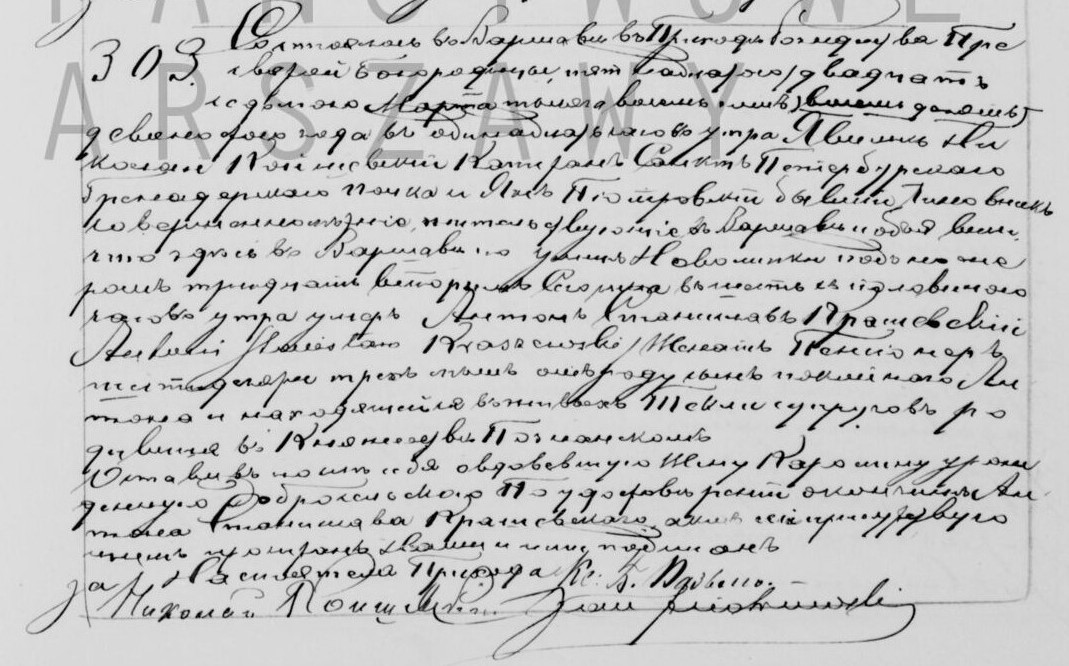 PAŃSTWOWE
ARSZAWY
303 Состоялось въ Варшавѣ въ Приходѣ Рождества Пре
святой Богородицы, пятнадцатого/двадцать
седьмого Марта тысяча восемьсотъ
девяностого года въ одинадцать часовъ утра Явились Ни
колай Капитанъ Санктъ Петербургского
Гренадерского полка и Янъ Піотровскій бывшій
жительствующіе въ Варшавѣ и объяви
что здѣсь въ Варшавѣ по улицѣ Новолипки подъ номе
ромъ тридцать вторымъ въ шесть съ половиною
часовъ утра умеръ Антонъ Станиславъ Крашевскій
Antoni Stanisław Kraszewski/Женатъ Пенсіонеръ
шестидесяти трехъ лѣтъ отъ роду сынъ покойного Ан
тона и находящейся въ живыхъ Текли супруговъ ро
дившіся въ Княжествѣ Познанскомъ
Оставивъ послѣ себя овдовѣвшую Жену Каролину урож
денную По удостовѣреніи о кончинѣ Ан
тона Станислава Крашевского, актъ сей присутствую
щимъ прочитанъ Нами и ими подписанъ
за Настоятеля Прихода Кс:
Николай Jan Piotrowski